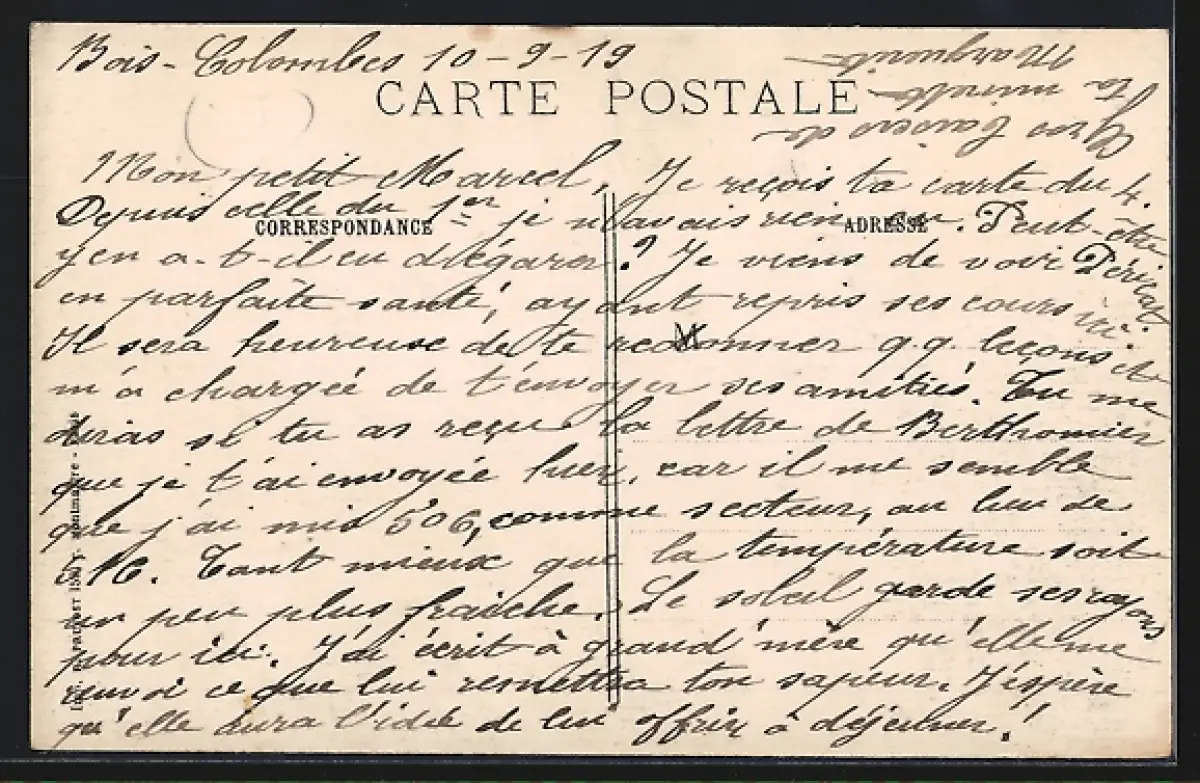 Bois-Colombes 10-9-19
CARTE POSTALE
Mon petit Marcel, Je reçois ta carte du 4.
Depuis celle du 1er je n'avais rien eu. Peut-être
CORRESPONDANCE
ADRESSE
y en a-t-il eu d'égarée? Je viens de voir
en parfaite santé, ayant repris ses cours ici.
Il sera heureuse de te redonner q.q. leçons et
m'a chargée de t'envoyer ses amitiés. Tu me
diras si tu as reçu la lettre de Berthomier
que je t'ai envoyée hier, car il me semble
que j'ai mis 506, comme secteur, au lieu de
516. Tant mieux que la température soit
un peu plus fraîche. Le soleil garde ses rayons
pour ici. J'ai écrit à grand'mère qu'elle me
renvoi ce que lui remettra ton sapeur. J'espère
qu'elle aura l'idée de lui offrir à déjeuner!
Gros baisers de
ta
Marguerite